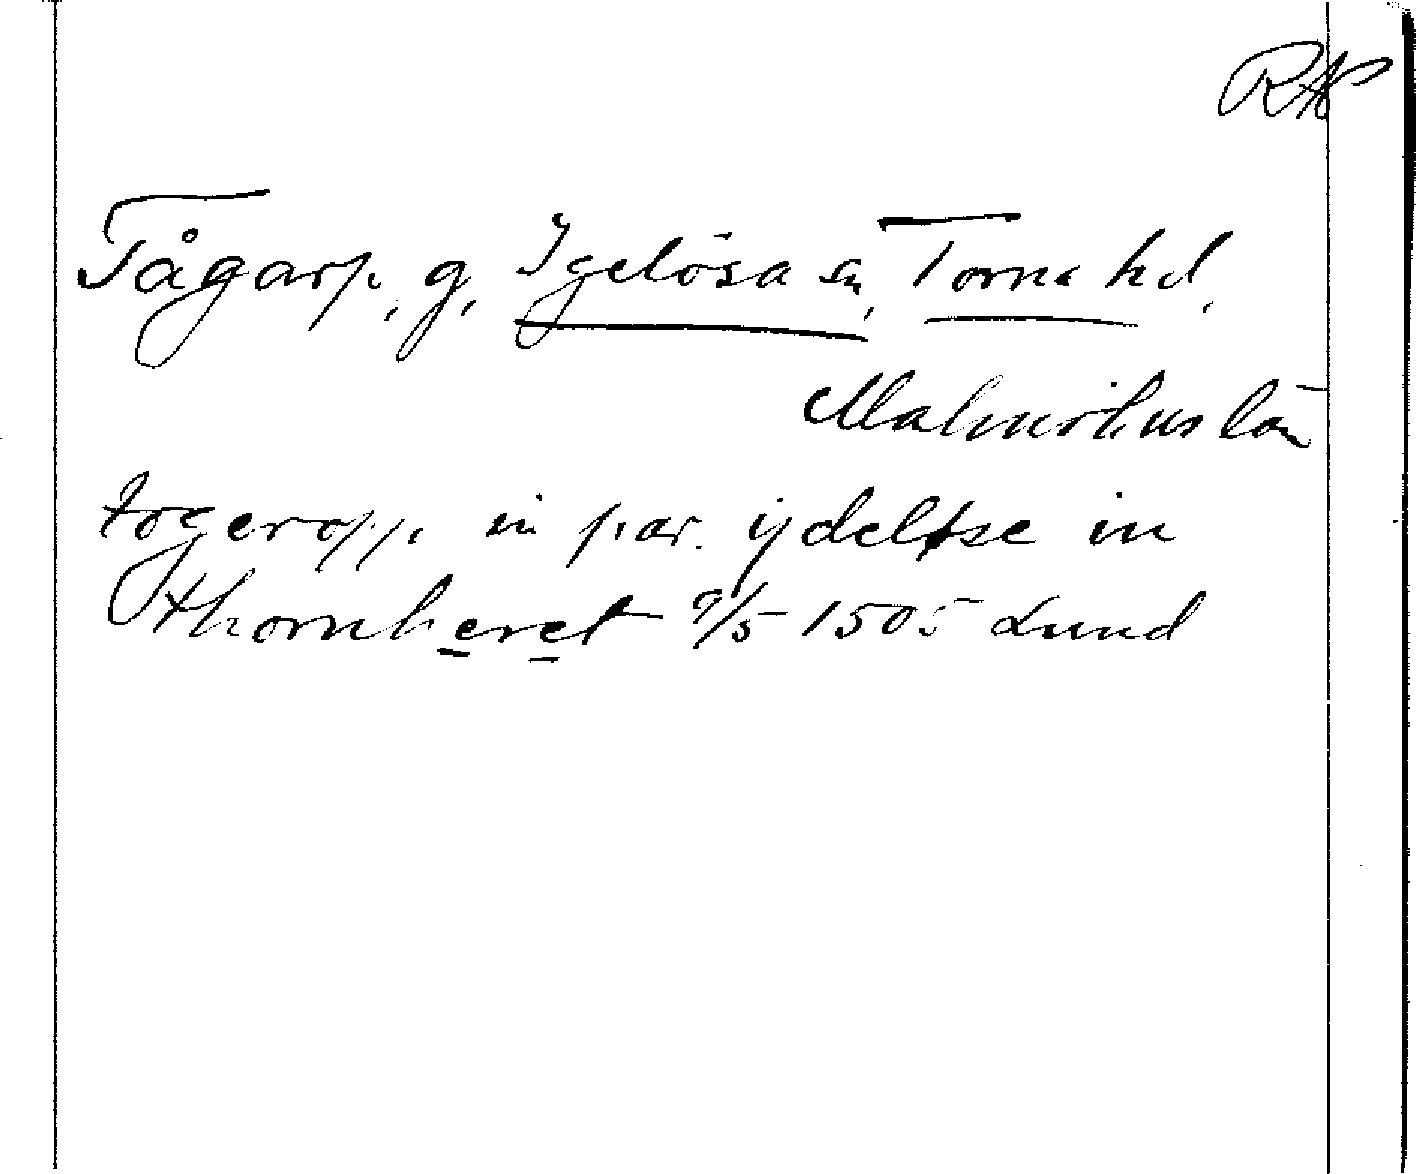 RAP
Tågarp, g, Igelösa sn, Torna hd,
Malmöhus län
togeropp in par. ijdeløse in
thornheret 9/5 1505 Lund